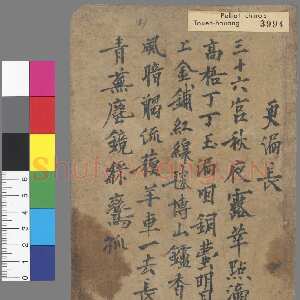 Pelliot chinois
Touen-houang 3994
更漏長
三十六宮秋夜
高梧丁丁玉漏咽銅壺明
上金鋪紅線毯博山鑪香
風暗觸流蘇羊車一去長
青蕪塵鏡綵鸞孤